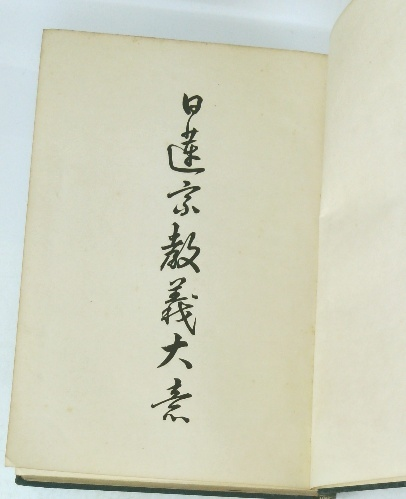 日蓮宗教義大意